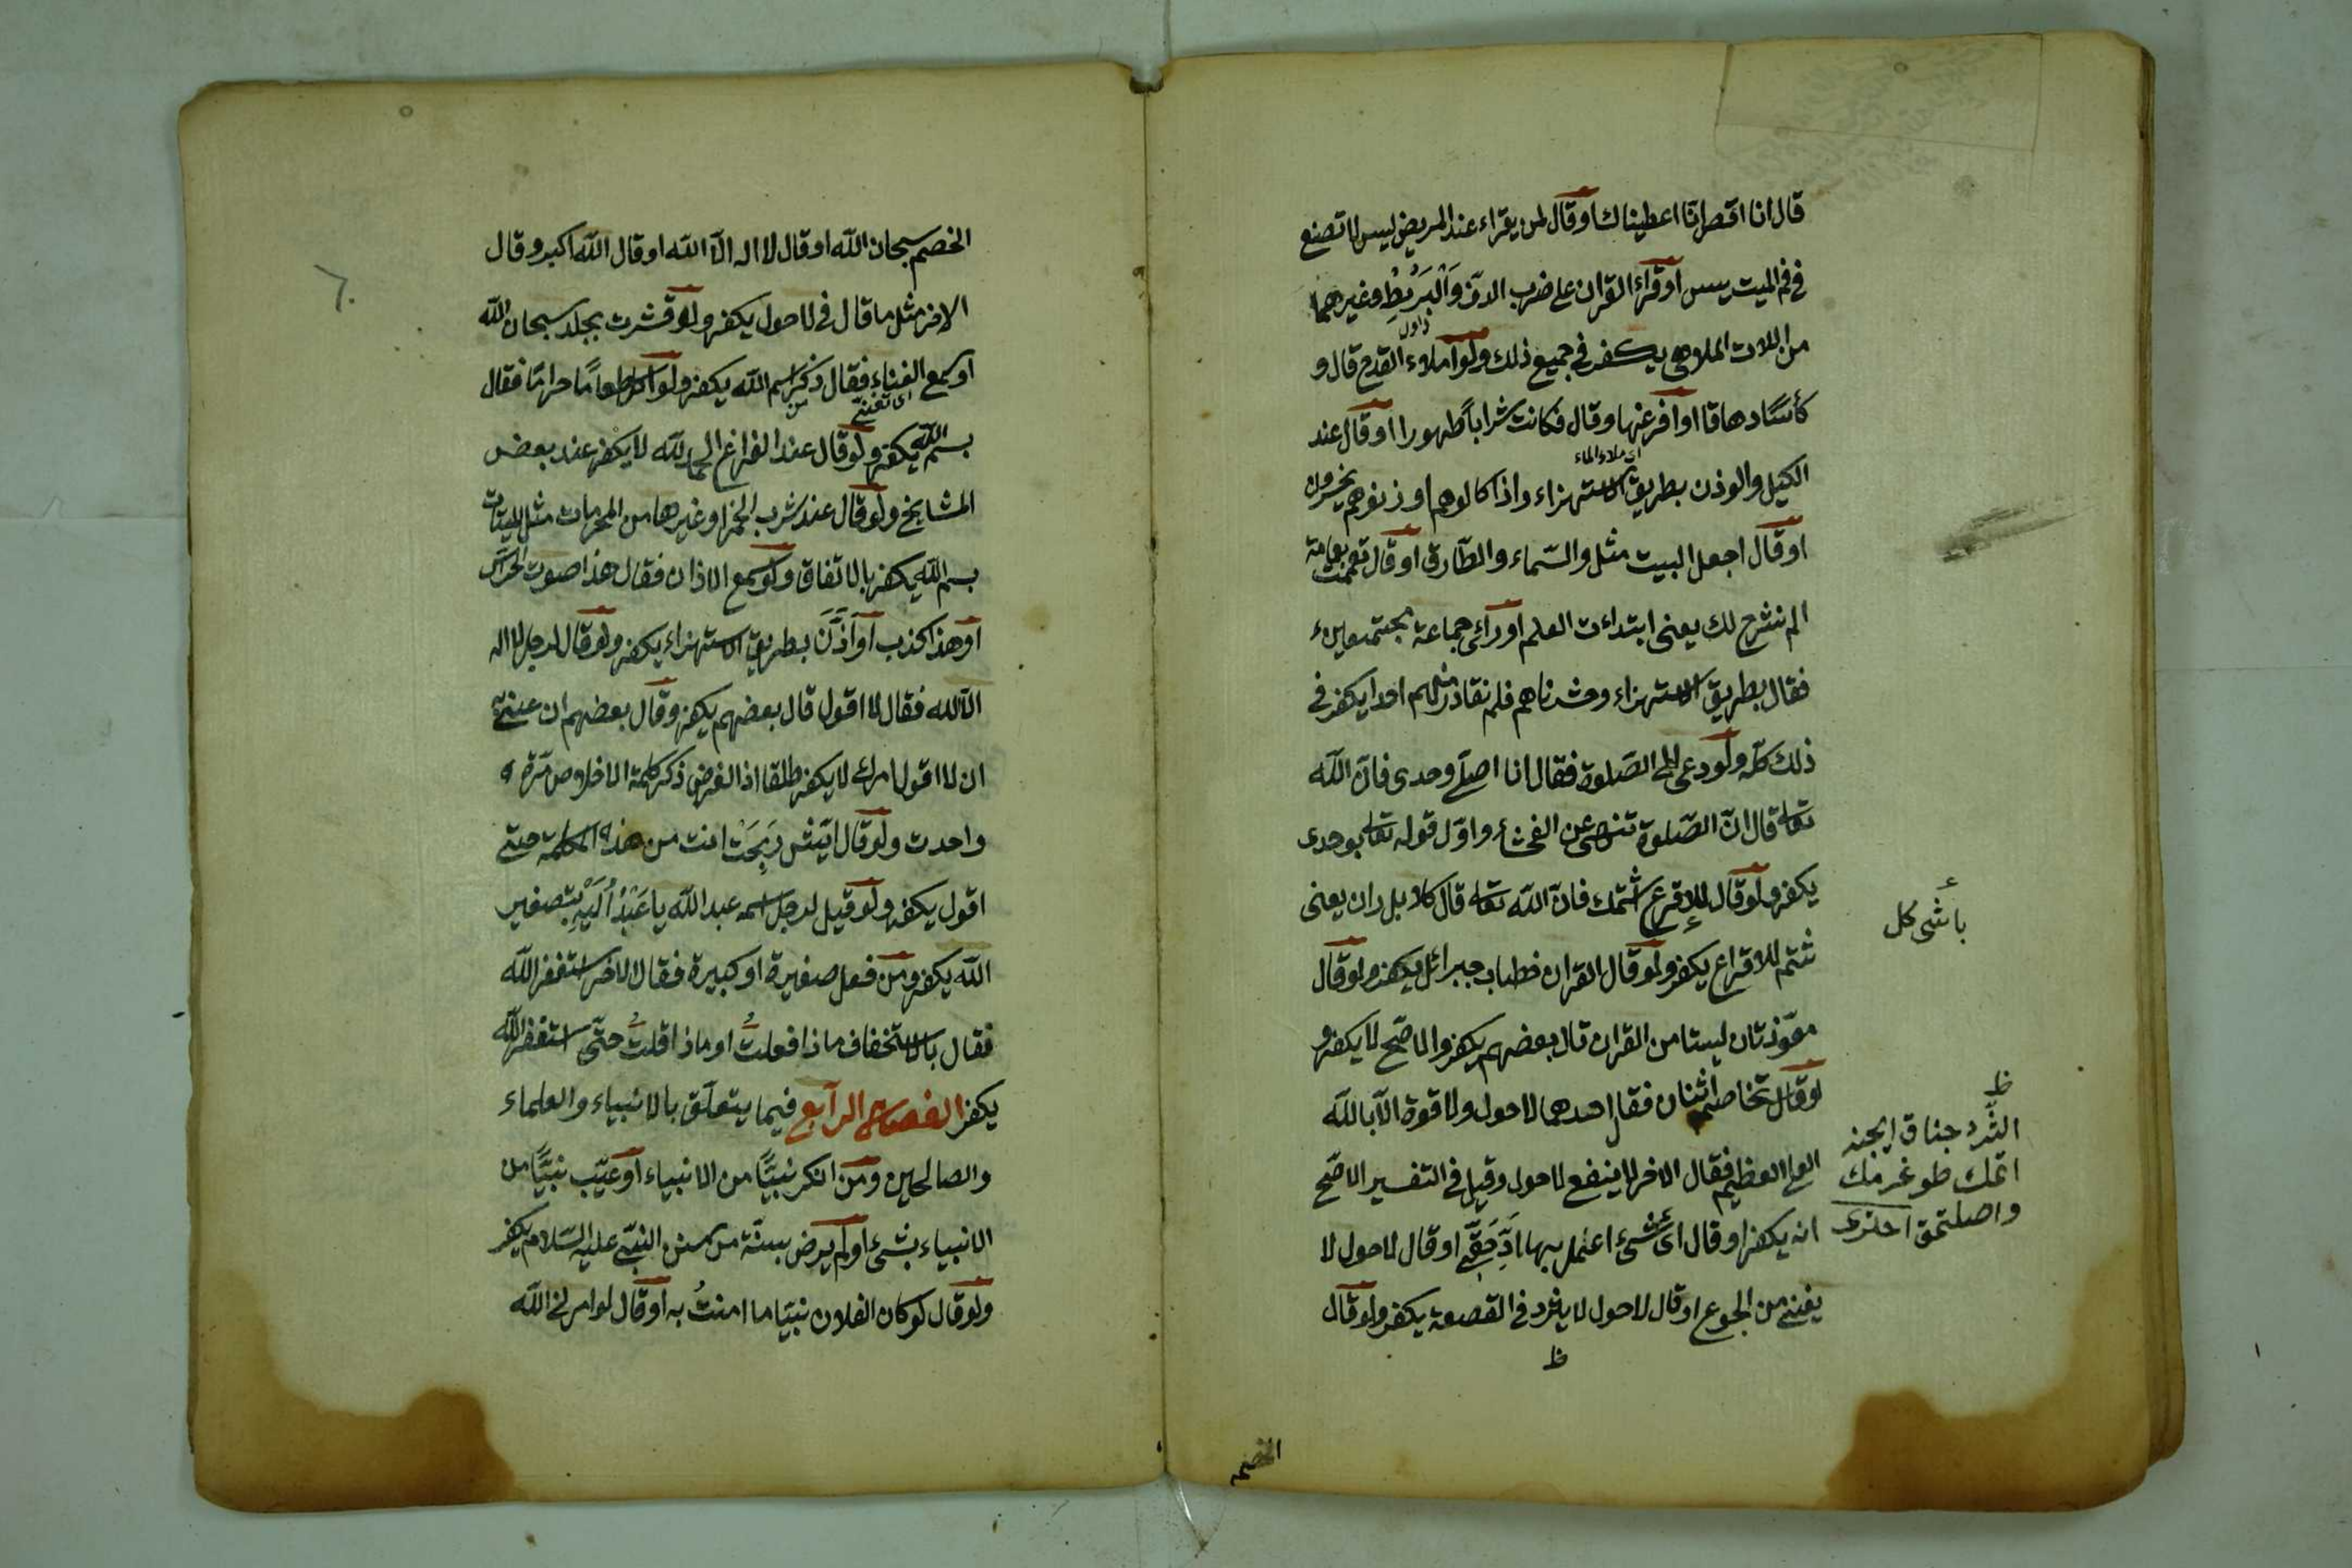 قال انا اقصر انا اعطيناك او قال لمن يقراء عند المريض ليس لا تصنع
فى فم الميت يس او قراء القران على ضرب الدف وَالْبَرْبَطِ وغيرهما
من اللات الملاهى يكفر فى جميع ذلك ولو املاء القدح قال و
كأسًا دهاقا او افرغها وقال فكانت شرابًا طهورا او قال عند
اى ملاء الماء
الكيل والوذن بطريق الاستهزاء واذا كالوهم او زنوهم يخسرون
او قال اجعل البيت مثل والسّماء والطّارق او قال تعممت بعمامة
الم نشرح لك يعنى ابتداءت العلم او رائى جماعة مجتمعين
فقال بطريق الاستهزاء وحشرناهم فلم نغادر منهم احدا يكفر فى
ذلك كلّه ولو دعى الى الصّلوة فقال انا اصلّى وحدى فانّ اللّه
تعالى قال انّ الصّلوة تنهى عن الفحشاء واوّل قوله تعالى بوحدى
يكفر ولو قال للاقرع شتمك فانّ اللّه تعالى قال كلا بل ران يعنى
شتم للاقراع يكفر ولو قال القران خطاب جبرائل يكفر ولو قال
معوّذتان ليستا من القران قال بعضهم يكفر والاصّح لا يكفر و
لو قال تخاصم اثنان فقال احدهما لاحول ولا قوة الّا باللّه
العلى العظيم فقال الاخر لا ينفع لاحول وقيل فى التفسير الاصّح
انه يكفر او قال اى شئ اعمل بها ادّ حقّى او قال لاحول لا
يغنى من الجوع او قال لاحول لا يثرد فى القصعة يكفر ولو قال
باشى كل
الثّرد جناق ايچنه
اتمك طوغرمك
واصلتمق احترى
الخصم
الخصم سبحان اللّه او قال لا اله الّا اللّه او قال اللّه اكبر وقال
الاخر مثل ما قال فى لاحول يكفر ولو قشرت بجلد سبحان اللّه
او سمع الغناء فقال ذكر اسم اللّه يكفر ولو اكل طعامًا حرامًا فقال
اى تغنّى
بسم اللّه يكفر ولو قال عند الفراغ الحمد للّه لا يكفر عند بعض
المشايخ ولو قال عند شرب الخمر او غيرها من المحرمات مثل الميتات
بسم اللّه يكفر بالاتفاق ولو سمع الاذان فقال هذا صوت الجرس
او هذا كذب او اَذَّنَ بطريق الاستهزاء يكفر ولو قال لرجل لا اله
الّا اللّه فقال لا اقول قال بعضهم يكفر وقال بعضهم ان عنى
ان لا اقول بامرك لا يكفر مطلقا اذ الفرض ذكر كلمة الاخلاص مرّة
واحدت ولو قال ايش رَبِحَتْ انت من هذه الكلمة حتى
اقول يكفر ولو قيل لرجل اسمه عبد اللّه يا عَبْدُ اُلَيْهِ بتصغير
اللّه يكفر ومن فعل صغيرة او كبيرة فقال الاخر استغفر اللّه
فقال بالاستخفاف ماذا فعلتُ او ماذا قلتُ حتّى استغفر اللّه
يكفر الفصل الرابع فيما يتعلّق بالانبياء والعلماء
والصالحين ومن انكر نبيّا من الانبياء او عيّب نبيّا من
الانبياء بشئ او لم يرض بسنّة من سنن النبىّ عليه السّلام يكفر
ولو قال لو كان الفلان نبيّا ما امنتُ به او قال لو امرنى اللّه